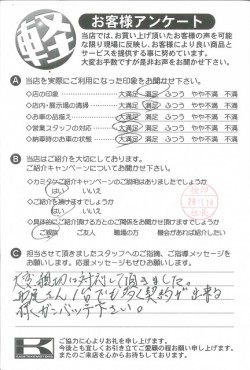 軽
お客様アンケート
当店では、お買い上げ頂いたお客様の声を可能
な限り現場に反映し、お客様により良い商品と
サービスを提供する事に努めています。
大変お手数ですが是非お声をお聞かせ下さい。
A 当店を実際にご利用になった印象をお聞かせ下さい。
◇店の印象 大満足 満足 ふつう やや不満 不満
◇店内・展示場の清掃 大満足 満足 ふつう やや不満 不満
◇お車の品揃え 大満足 満足 ふつう やや不満 不満
◇営業スタッフの対応 大満足 満足 ふつう やや不満 不満
◇納車時のお車の状態 大満足 満足 ふつう やや不満 不満
B 当店はご紹介を大切にしております。
ご紹介キャンペーンについてお聞かせ下さい。
◇カミタケご紹介キャンペーンのご説明はありましたでしょうか
はい いいえ
◇ご紹介を頂けますでしょうか
はい いいえ
◇具体的にご紹介頂ける方とのご関係をお聞かせ頂けますでしょうか
ご親戚 ご友人 職場の方 機会があれば紹介したい
C 担当させて頂きましたスタッフへのご指摘、ご指導メッセージを
お願いします。応援メッセージもぜひお願いします。
大変親切に対応して頂きました。
1台でも多く契約が出来る
様ガンバッテ下さい。
K
ご協力に心よりお礼を申し上げます。
今後とも宜しくお引き立てご愛顧の程お願い申し上げます。
またのご来店を心からお待ちしております。